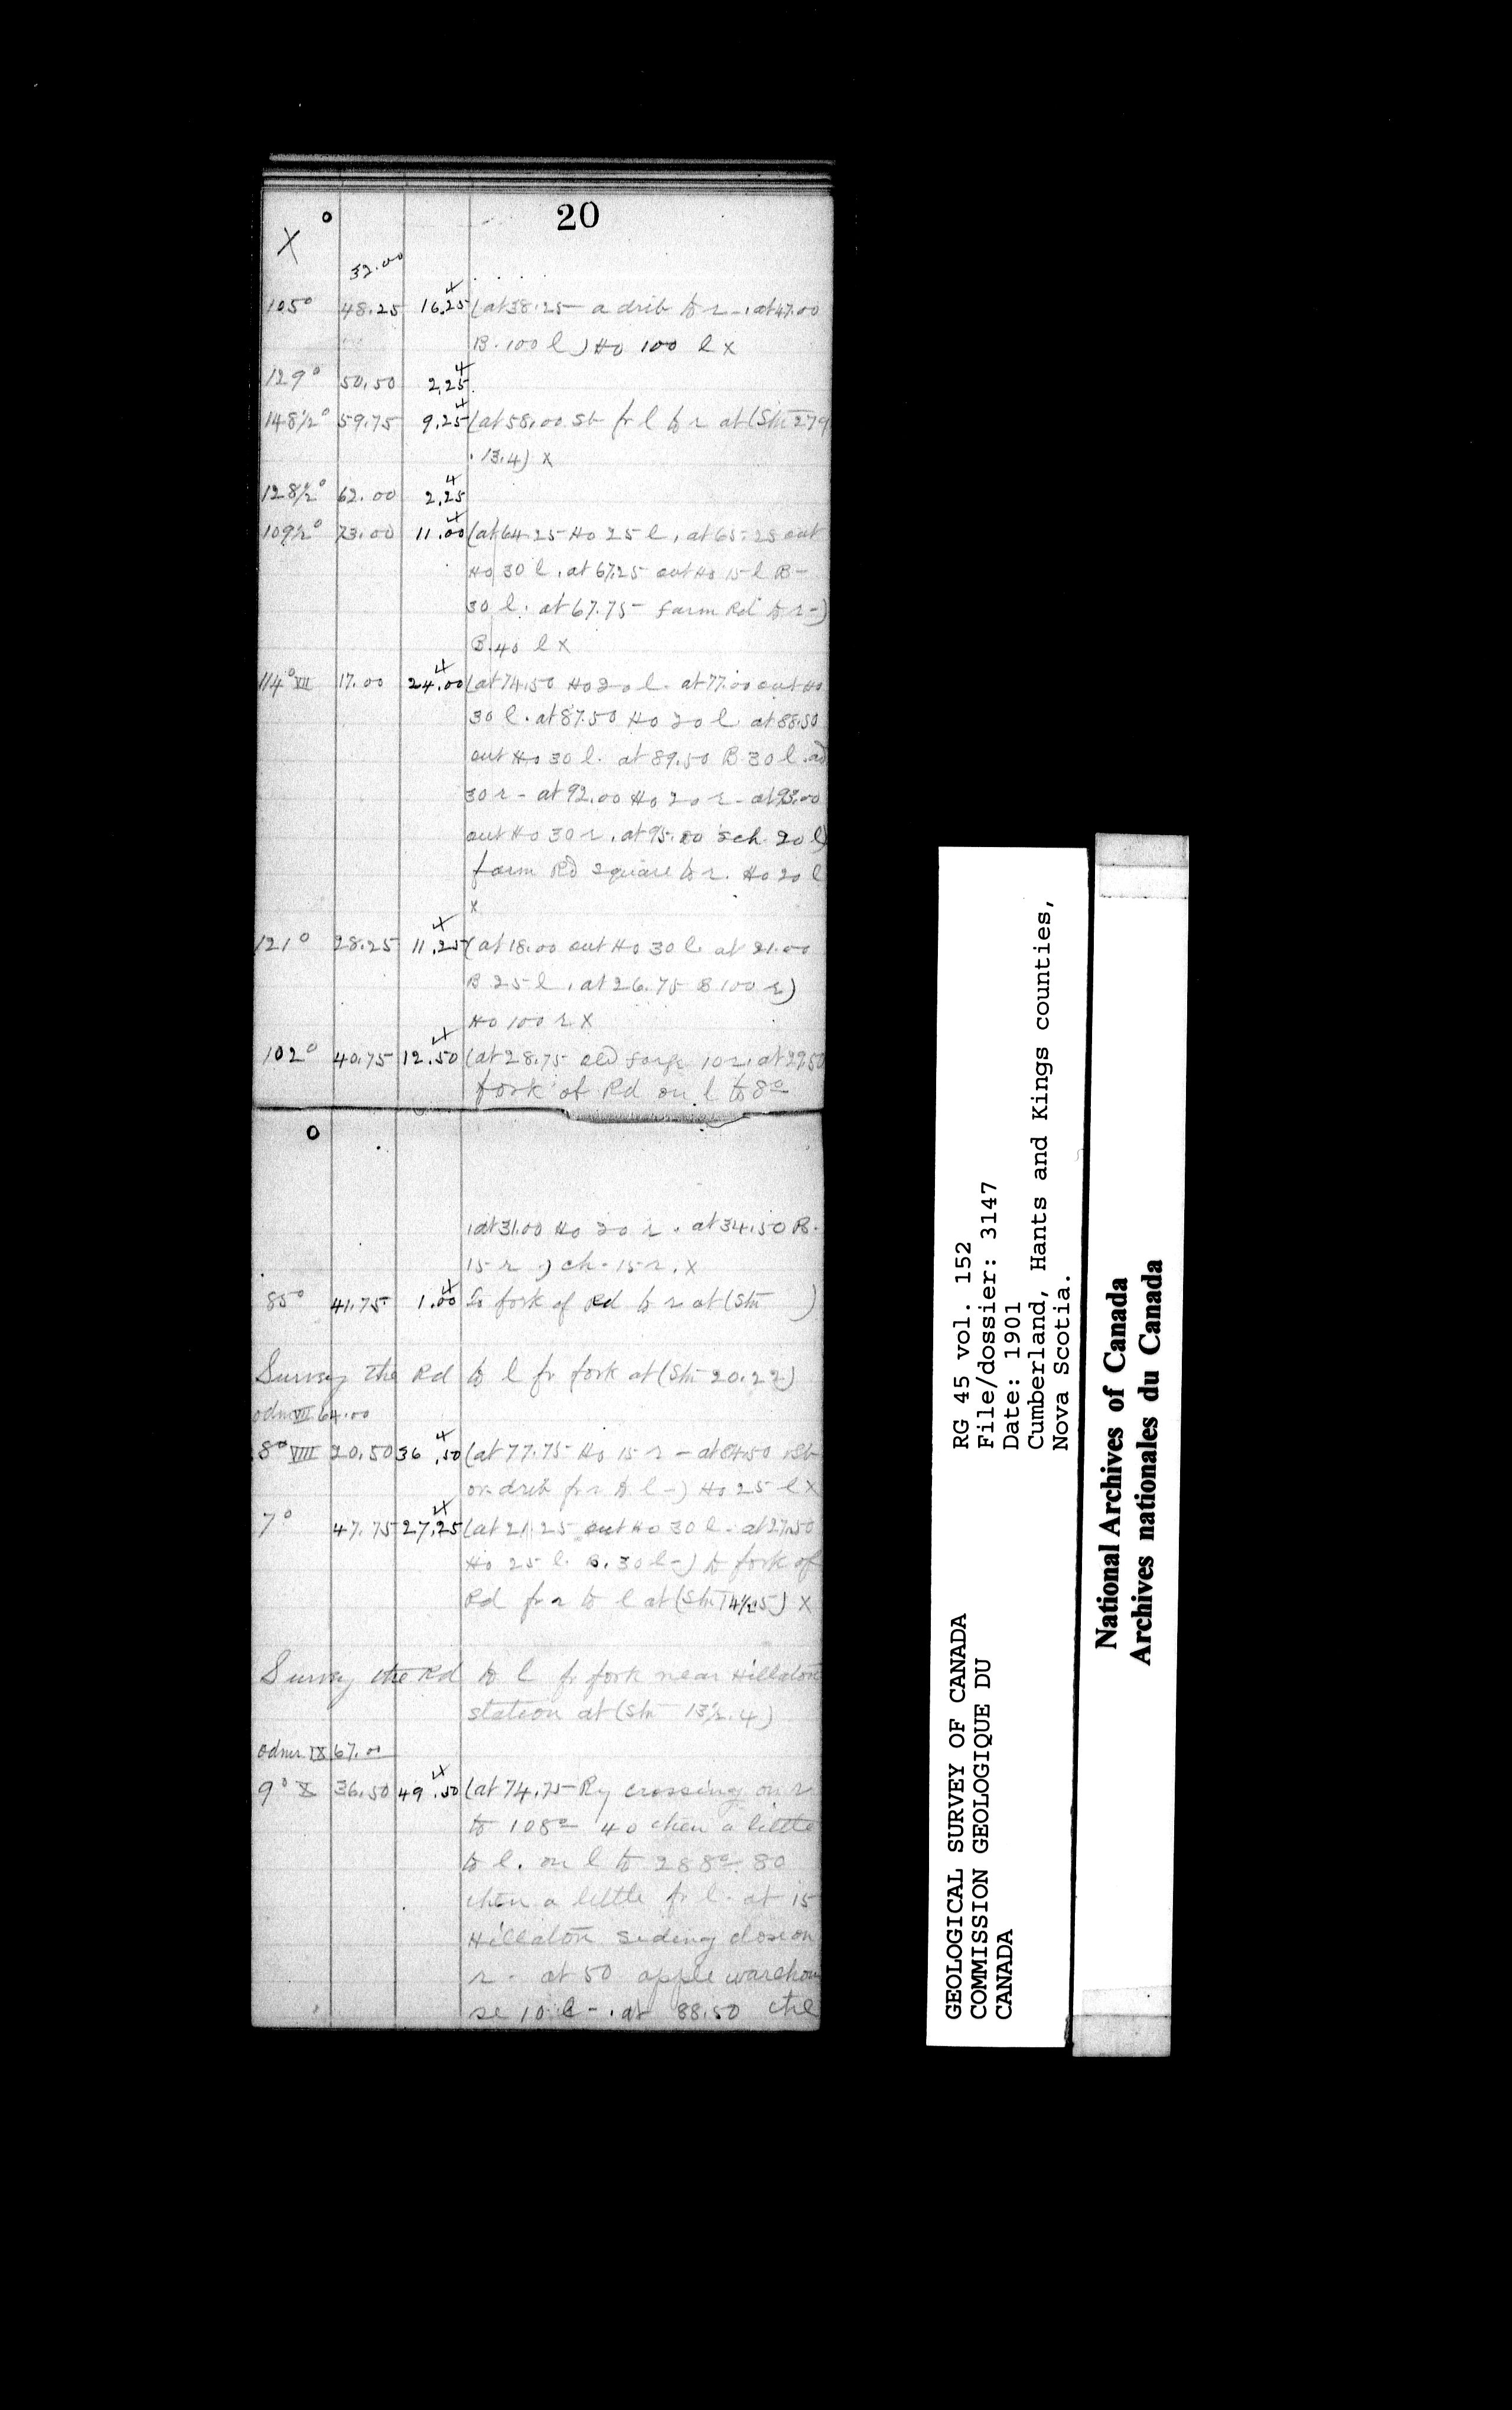 20
X
32.00
105° 48.25 16.25 (at 38.25 a drib to r -, at 47.00
B. 100 l) Ho 100 l x
129° 50.50 2.25
148½° 59.75 9.25 (at 58.00 St fr l to r at (Stn 279
.13.4) x
128½° 62.00 2.25
109½° 73.00 11.00 (at 64.25 Ho 25 l, at 65.25 out
Ho 30 l, at 67.25 out Ho 15 l B-
30 l. at 67.75 farm Rd to r-)
B. 40 l x
114° VII 17.00 24.00 (at 74.50 Ho 20 l. at 77.00 out Ho
30 l. at 87.50 Ho 20 l. at 88.50
out Ho 30 l. at 89.50 B. 30 l. ad
30 r - at 92.00 Ho 20 r - at 93.00
out Ho 30 r, at 95.00 sch. 20 l)
farm Rd square to r. Ho 20 l
x
121° 28.25 11.25 (at 18.00 out Ho 30 l. at 21.00
B 25 l, at 26.75 B 100 r)
Ho 100 r x
102° 40.75 12.50 (at 28.75 old forge 10 r, at 29.50
fork of Rd on l to 8°
, at 31.00 Ho 20 r. at 34.50 B.
15 r) ch. 15 r. x
85° 41.75 1.00 to fork of Rd to r at (Stn )
Survey the Rd to l fr fork at (Stn 20.22)
odmr VII 64.00
8° VIII 20.50 36.50 (at 77.75 Ho 15 r - at 84.50 St
or drib fr r to l -) Ho 25 l x
7° 47.75 27.25 (at 21.25 out Ho 30 l. at 27.50
Ho 25 l. B. 30 l -) to fork of
Rd fr r to l at (Stn 14½.5) x
Survey the Rd to l fr fork near Hillaton
station at (Stn 13½.4)
odmr IX 67.00
9° X 36.50 49.50 (at 74.75 Ry crossing on r
to 108° 40 then a little
to l. on l to 288° 80
then a little fr l. at 15
Hillaton siding close on
r. at 50 apple warehou
se 10 l -. at 88.50 the
GEOLOGICAL SURVEY OF CANADA
COMMISSION GEOLOGIQUE DU
CANADA
RG 45 vol. 152
File/dossier: 3147
Date: 1901
Cumberland, Hants and Kings counties,
Nova Scotia.
National Archives of Canada
Archives nationales du Canada